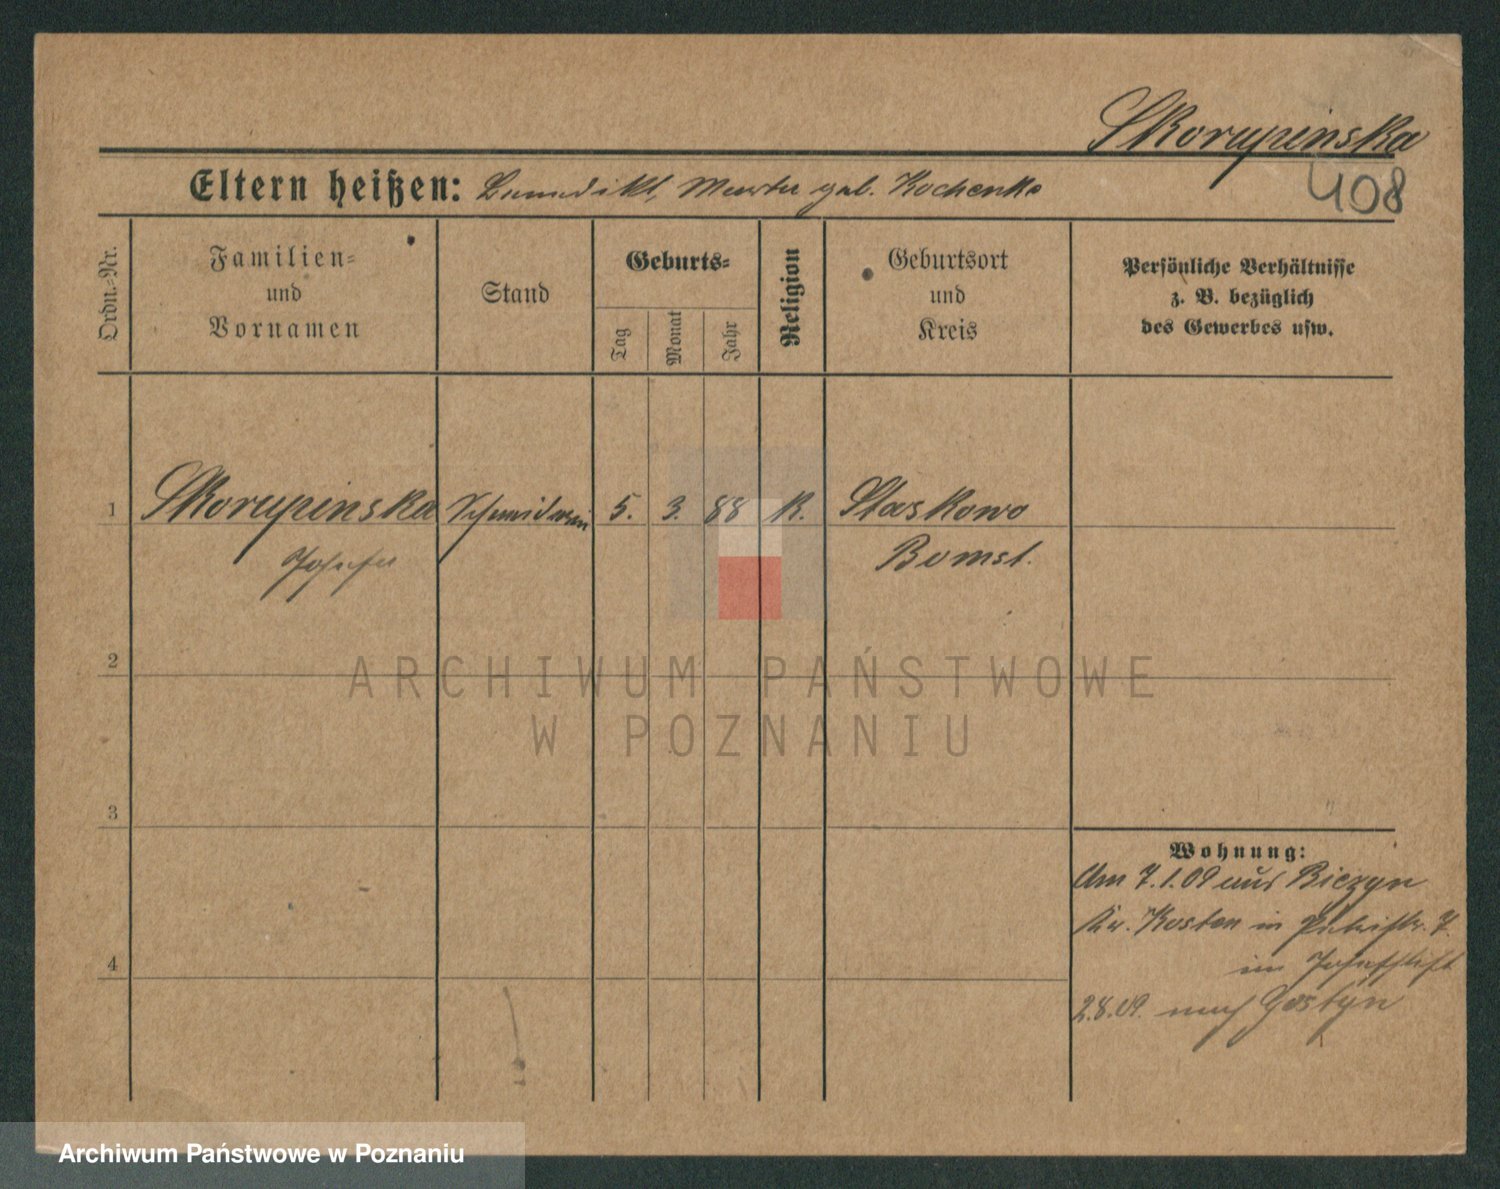 Skorupinska
408
Eltern heißen: Benedikt, geb. Kochenka
Ordn.-Nr.
Familien-
und
Vornamen
Stand
Geburts-
Tag
Monat
Jahr
Religion
Geburtsort
und
Kreis
Persönliche Verhältnisse
z. B. bezüglich
des Gewerbes usw.
1 Skorupinska Schneiderin 5. 3. 88 K. Staskowo
Josefa Bomst.
2
3
4
Wohnung:
Am 7.1.09 aus Biczyn
Kr. Kosten in 7.
im Josefstift
2.8.09. nach Gostyn
ARCHIWUM PAŃSTWOWE
W POZNANIU
Archiwum Państwowe w Poznaniu